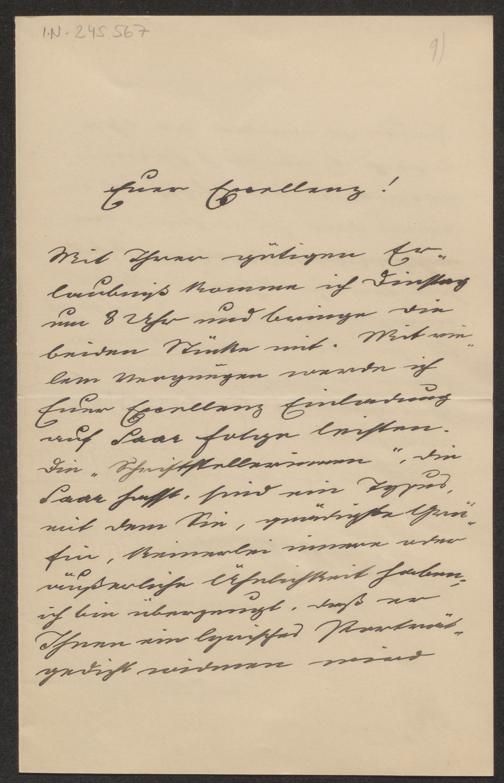 I.N. 245.567
9)
Euer Excellenz!
Mit Ihrer gütigen Er-
laubniß komme ich Dinstag
um 8 Uhr und bringe die
beiden Stücke mit. Mit vie-
lem Vergnügen werde ich
Euer Excellenz Einladung
auf Saar folge leisten.
Die „Schriftstellerinnen", die
Saar hasst, sind ein Typus,
mit dem Sie, gnädigste Grä-
fin, keinerlei innere oder
äußerliche Ähnlichkeit haben,
ich bin überzeugt, daß er
Ihnen ein lyrisches Porträt-
gedicht widmen wird